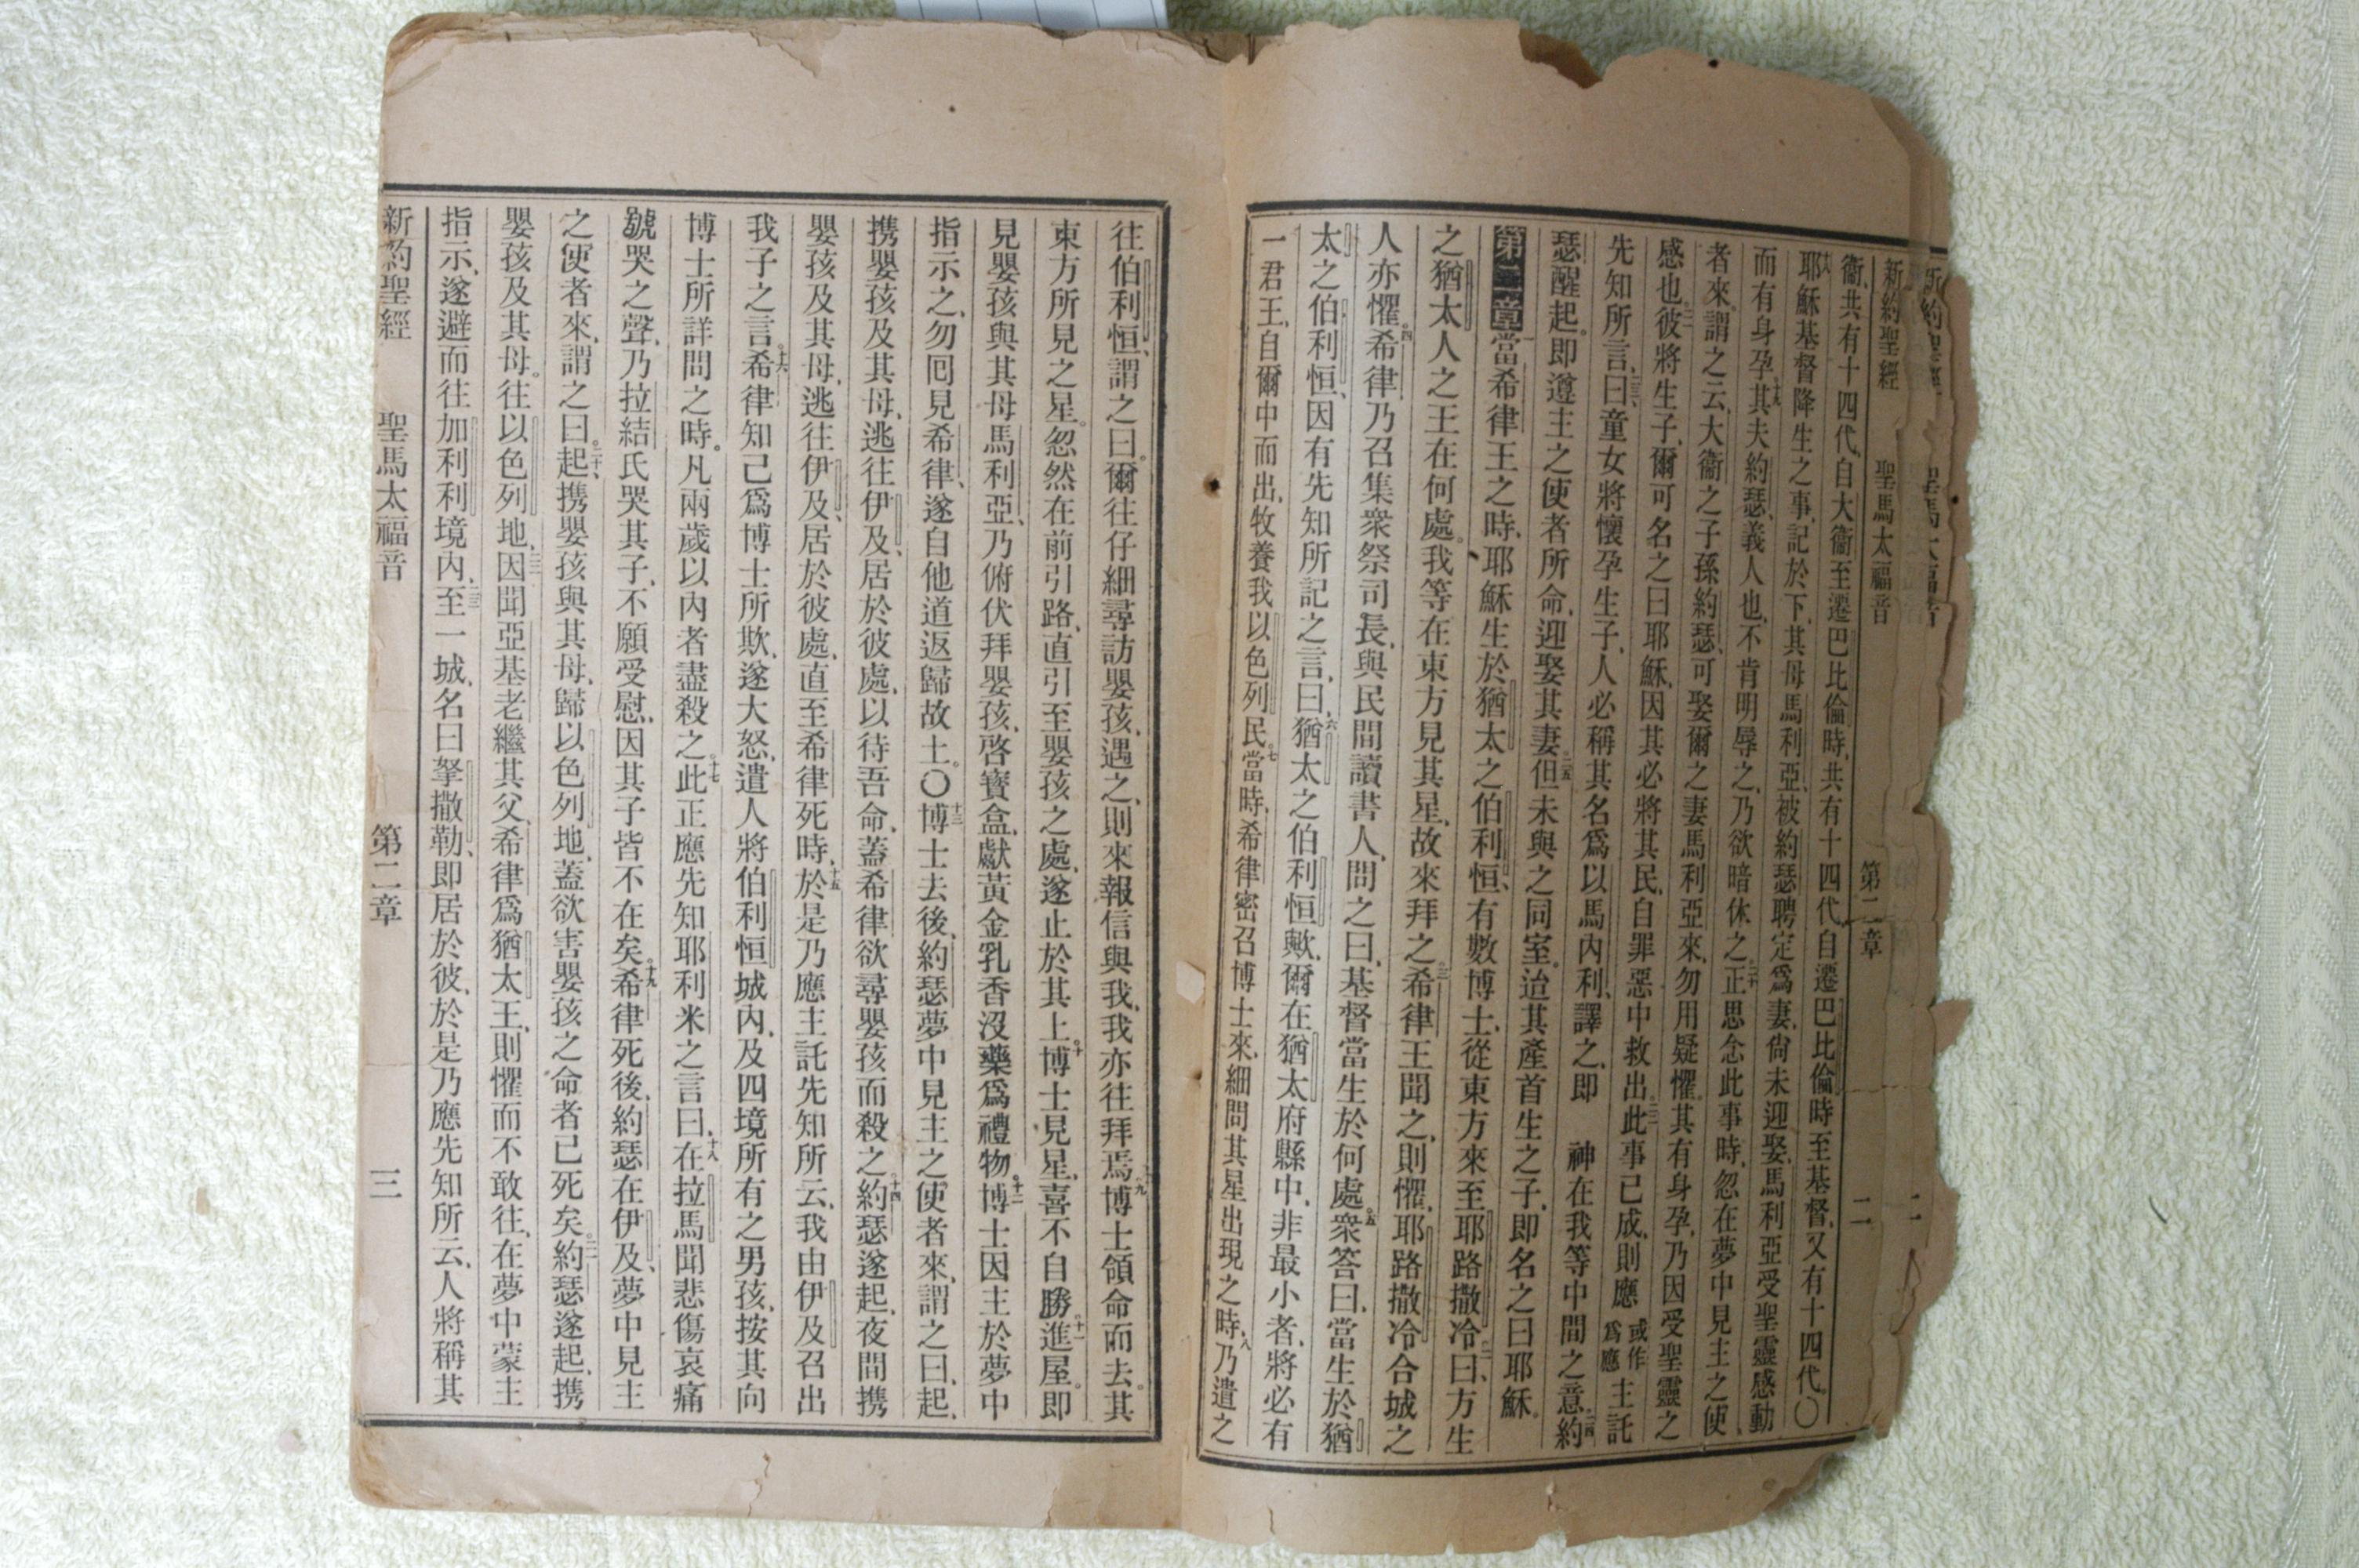 新約聖經 聖馬太福音 第二章 二
衞、共有十四代、自大衞至遷巴比倫時、共有十四代、自遷巴比倫時至基督、又有十四代。〇
十八耶穌基督降生之事、記於下、其母馬利亞、被約瑟聘定爲妻、尙未迎娶、馬利亞受聖靈感動
而有身孕、十九其夫約瑟、義人也、不肯明辱之、乃欲暗休之。二十正思念此事時、忽在夢中見主之使
者來、謂之云、大衞之子孫約瑟、可娶爾之妻馬利亞來、勿用疑懼。其有身孕、乃因受聖靈之
感也。二一彼將生子、爾可名之曰耶穌、因其必將其民、自罪惡中救出。二二此事已成、則應或作爲應主託
先知所言、二三曰、童女將懷孕生子、人必稱其名爲以馬內利、譯之、即 神在我等中間之意。二四約
瑟醒起。即遵主之使者所命、迎娶其妻。二五但未與之同室。迨其產首生之子、即名之曰耶穌。
第二章 當希律王之時、耶穌生於猶太之伯利恒、有數博士、從東方來至耶路撒冷。二曰、方生
之猶太人之王在何處。我等在東方見其星、故來拜之。三希律王聞之、則懼、耶路撒冷合城之
人亦懼。四希律乃召集衆祭司長、與民間讀書人、問之曰、基督當生於何處。五衆答曰、當生於猶
太之伯利恒、因有先知所記之言、曰、六猶太之伯利恒歟、爾在猶太府縣中、非最小者、將必有
一君王、自爾中而出、牧養我以色列民。七當時、希律密召博士來、細問其星出現之時、八乃遣之
往伯利恒、謂之曰。爾往仔細尋訪嬰孩、遇之、則來報信與我、我亦往拜焉。九博士領命而去。其
東方所見之星。忽然在前引路、直引至嬰孩之處、遂止於其上。十博士見星、喜不自勝。十一進屋。即
見嬰孩與其母馬利亞、乃俯伏拜嬰孩、啓寶盒、獻黃金乳香沒藥爲禮物。十二博士因主於夢中
指示之、勿囘見希律、遂自他道返歸故土。〇十三博士去後、約瑟夢中見主之使者來、謂之曰、起、
携嬰孩及其母、逃往伊及、居於彼處、以待吾命、蓋希律欲尋嬰孩而殺之。十四約瑟遂起、夜間携
嬰孩及其母、逃往伊及、居於彼處、直至希律死時、十五於是乃應主託先知所云、我由伊及召出
我子之言。十六希律知己爲博士所欺、遂大怒、遣人將伯利恒城內、及四境所有之男孩、按其向
博士所詳問之時。凡兩歲以內者盡殺之。十七此正應先知耶利米之言曰、十八在拉馬聞悲傷哀痛
號哭之聲、乃拉結氏哭其子、不願受慰、因其子皆不在矣。十九希律死後、約瑟在伊及、夢中見主
之使者來、謂之曰。二十起、携嬰孩與其母、歸以色列地、蓋欲害嬰孩之命者已死矣。二一約瑟遂起、携
嬰孩及其母。往以色列地、二二因聞亞基老繼其父、希律爲猶太王、則懼而不敢往、在夢中蒙主
指示、遂避而往加利利境內、二三至一城、名曰拏撒勒、即居於彼、於是乃應先知所云、人將稱其
新約聖經 聖馬太福音 第二章 三